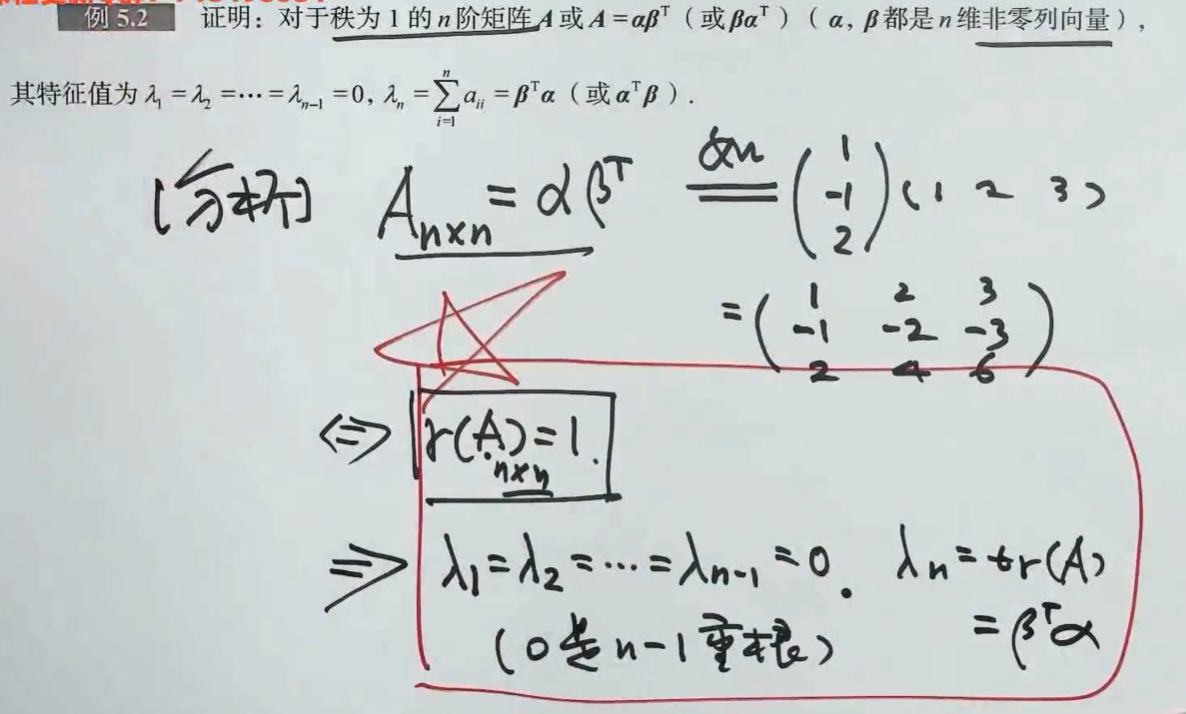 例 5.2 证明：对于秩为 1 的 n 阶矩阵 A 或 A = αβᵀ（或 βαᵀ）（α, β 都是 n 维非零列向量），
其特征值为 λ₁ = λ₂ = ⋯ = λₙ₋₁ = 0, λₙ = ∑ᵢ₌₁ⁿ aᵢᵢ = βᵀα（或 αᵀβ）.
[分析] Aₙₓₙ = αβᵀ 如 (1 -1 2) (1 2 3)
= ( 1 2 3
-1 -2 -3
2 4 6 )
⇔ r(Aₙₓₙ) = 1.
⇒ λ₁ = λ₂ = ⋯ = λₙ₋₁ = 0. λₙ = tr(A)
(0是n-1重根) = βᵀα